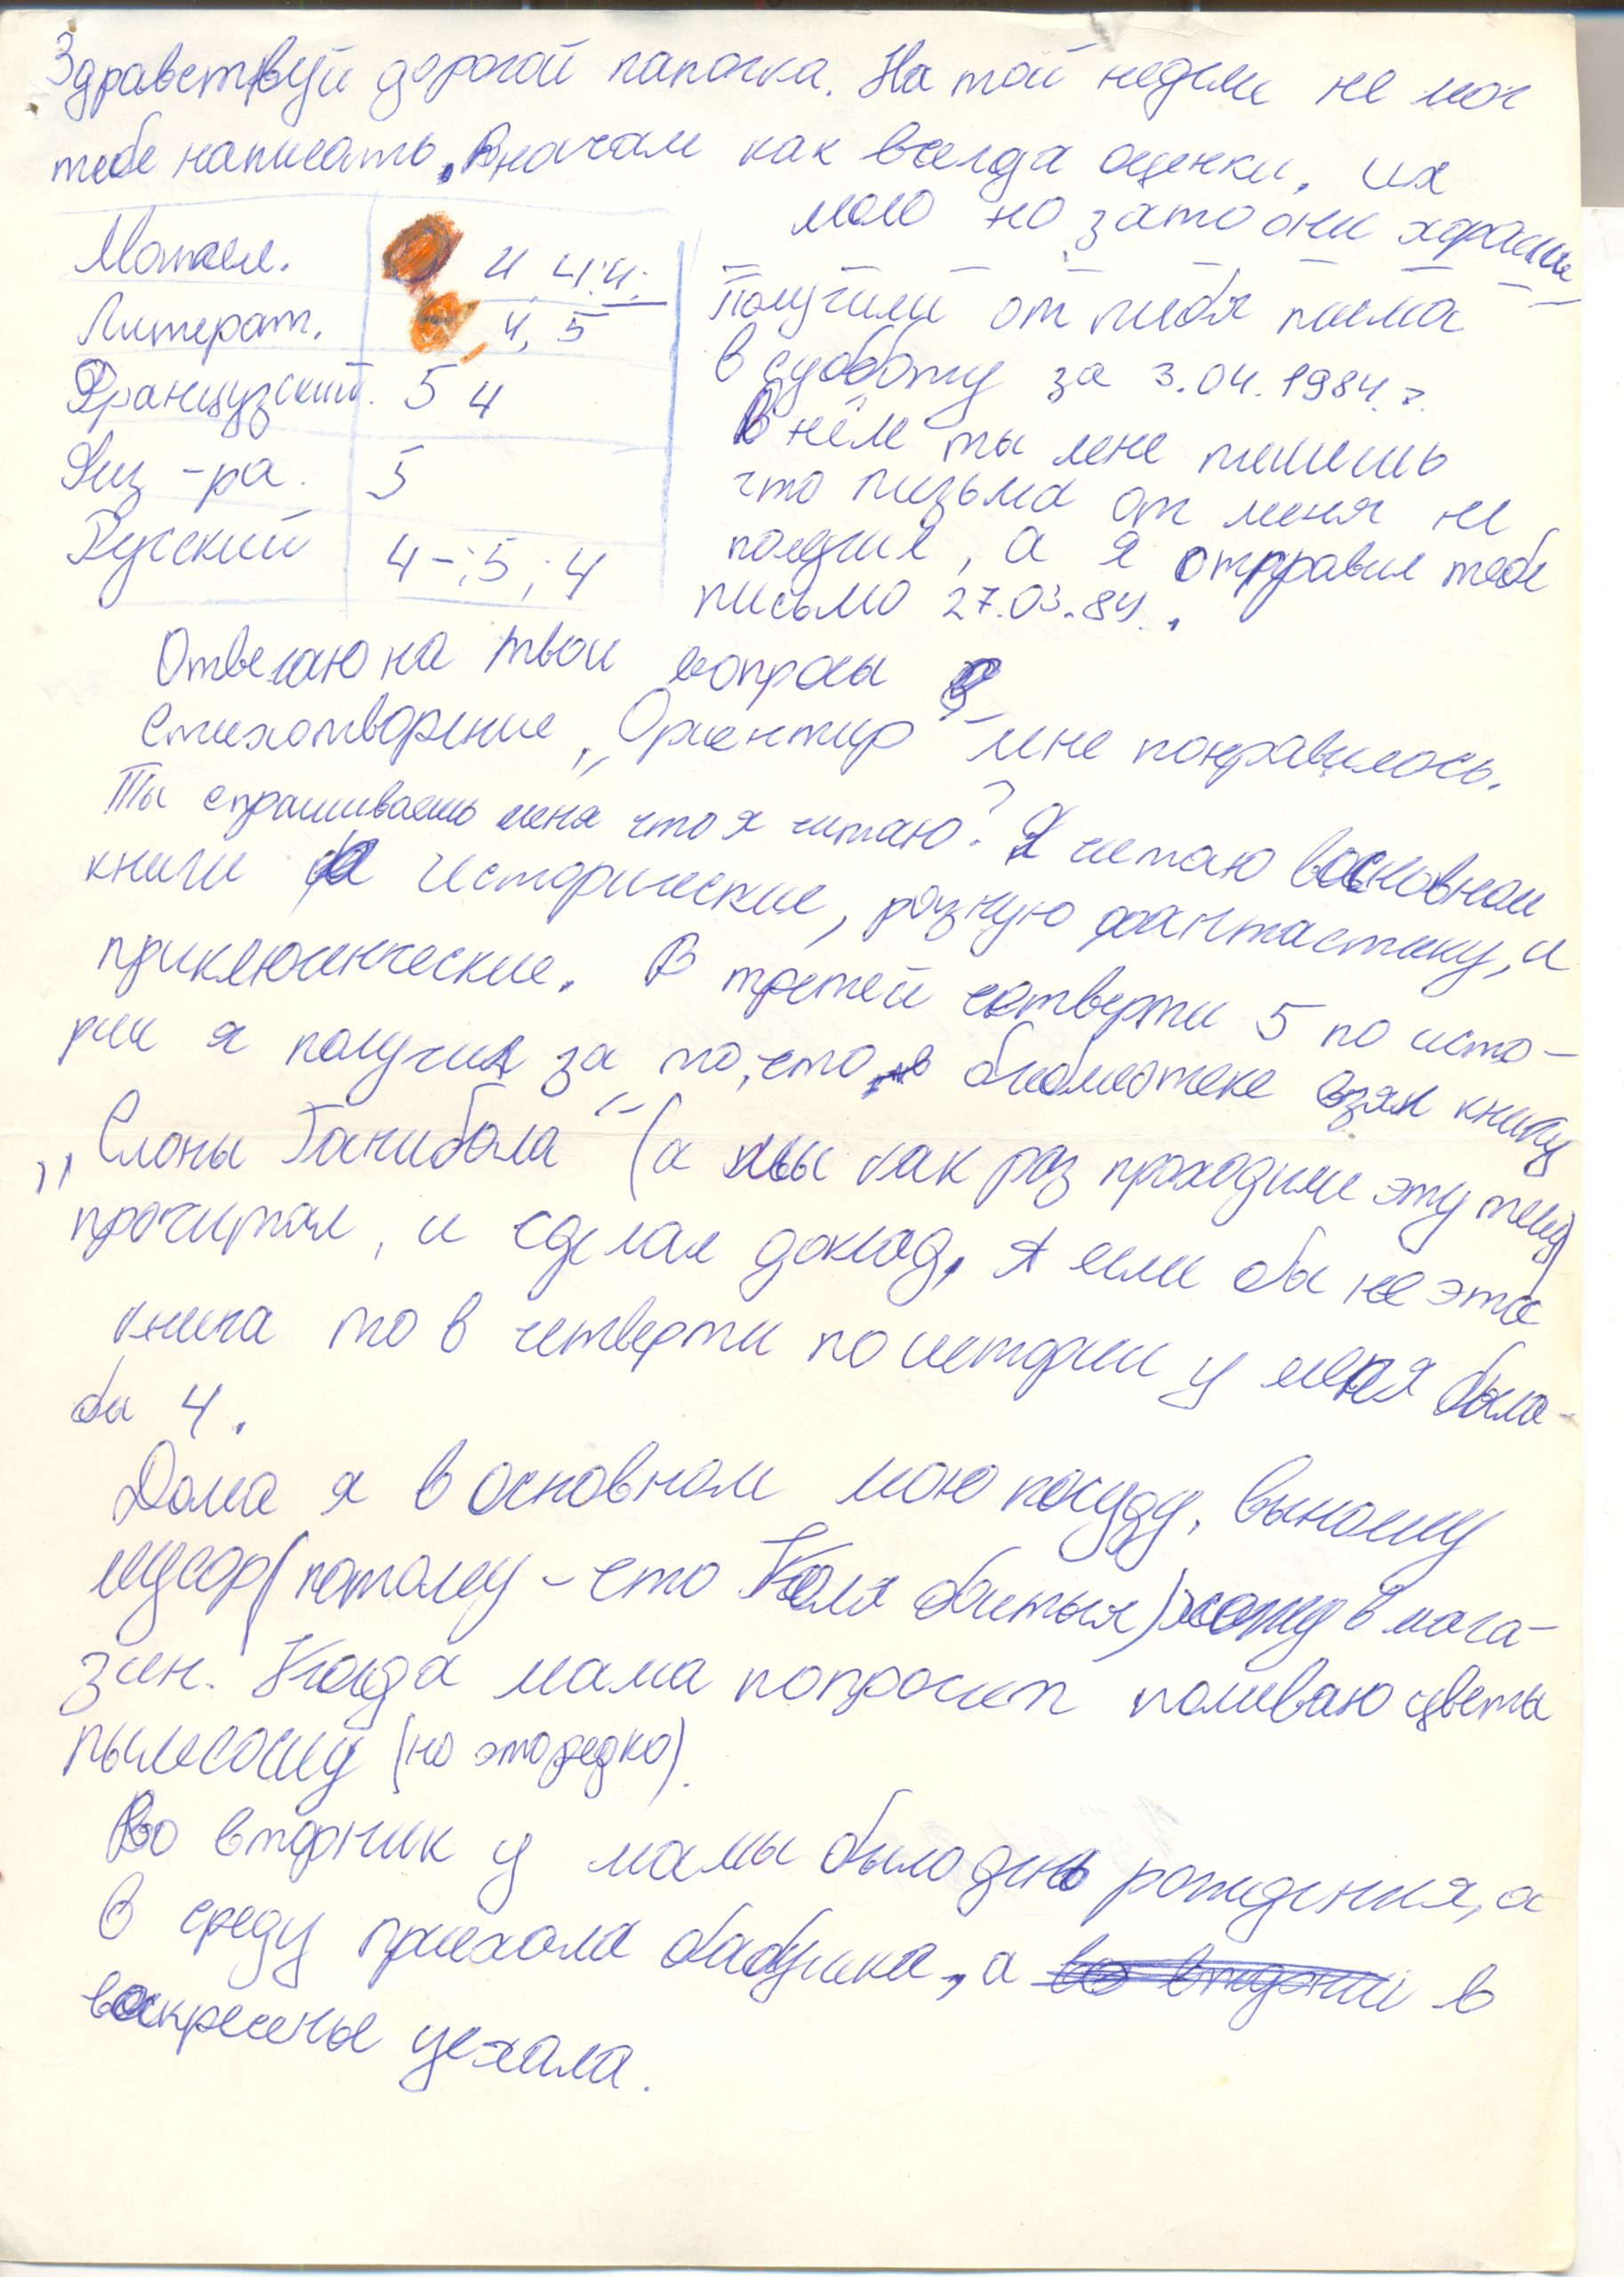 Здравствуй дорогой папочка. На той неделе не мог
тебе написать. Вначале как всегда оценки, их
мало но зато они хорошие
Матем. 4, 4; 4;
Литерат. 4, 5
Французский. 5 4
Физ-ра. 5
Русский 4-; 5; 4
Получили от тебя писма
в субботу за 3.04.1984.г.
В нём ты мне пишешь
что письма от меня не
получил, а я отправил тебе
письмо 27.03.84.
Отвечаю на твои вопросы
Стихотворение „Ориентир" мне понравилось.
Ты спрашиваешь меня что я читаю? Я читаю восновном
книги исторические, разную фантастику, и
приключенческие. В третей четверти 5 по исто-
рии я получил за то, что в библиотеке взял книгу
„Слоны Ганибала" (а мы как раз проходили эту тему)
прочитал, и сделал доклад. А если бы не эта
книга то в четверти по истории у меня было-
бы 4.
Дома я в основном мою посуду, выношу
мусор (потому-что Коля боиться) хожу в мага-
зин. Когда мама попросит поливаю цветы
пылесошу (но это редко).
Во вторник у мамы было день рождения, а
в среду приехала бабушка, а во вторни в
воскресенье уехала.